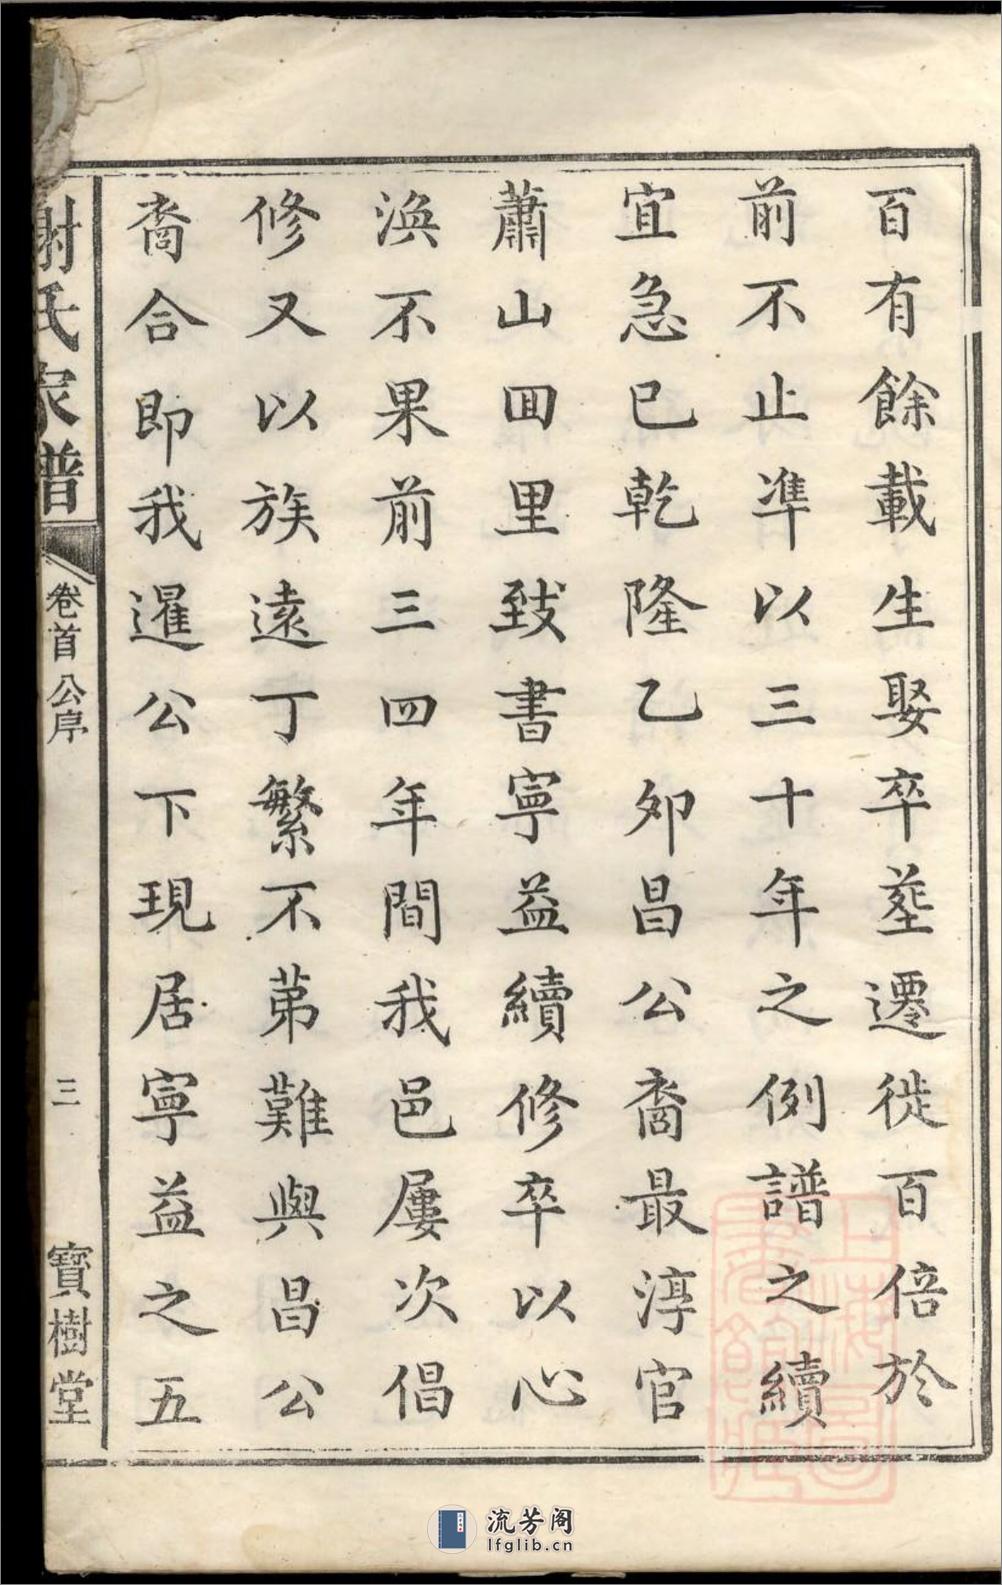 百有餘載生娶卒塟遷徙百倍於
前不止凖以三十年之例譜之續
宜急已乾隆乙夘昌公裔最淳官
蕭山囬里致書寜益續修卒以心
渙不果前三四年間我邑屢次倡
修又以族遠丁繁不苐難與昌公
裔合即我暹公下現居寜益之五
謝氏家譜
卷首 公序
三
寶樹堂
上海圖書館藏
流芳阁
lfglib.cn